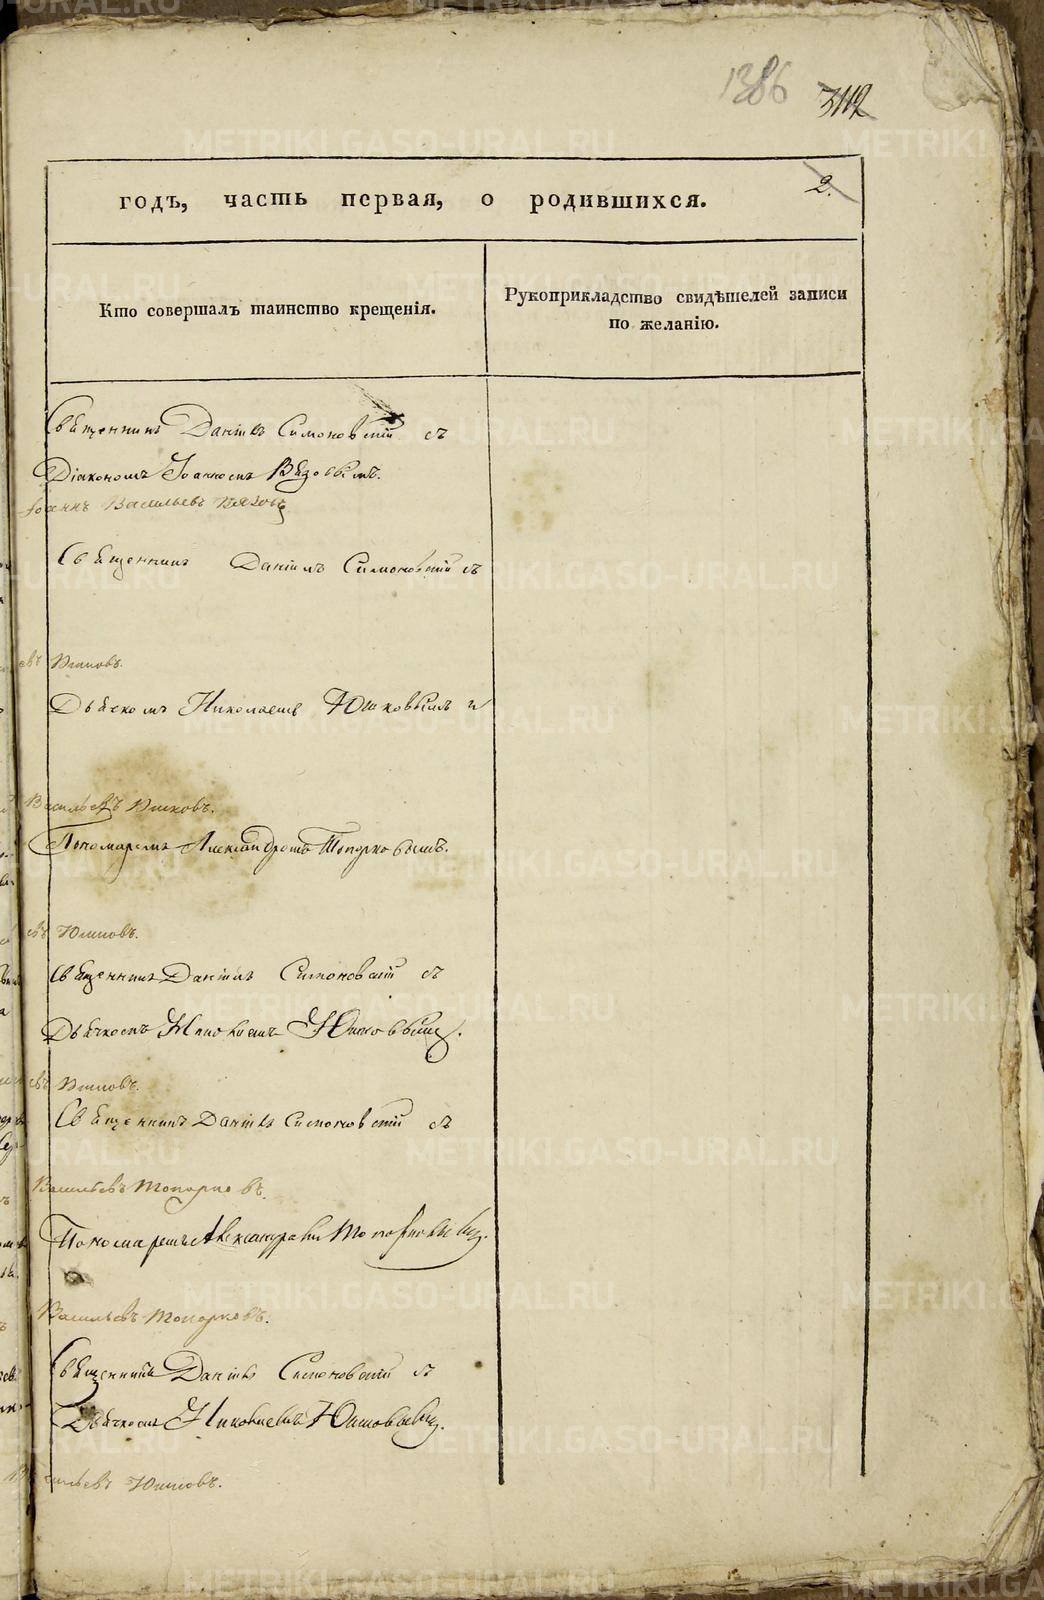 1386 3112
2.
годъ, часть первая, о родившихся.
Кто совершалъ таинство крещенія.
Рукоприкладство свидѣтелей записи
по желанію.
Священникъ Даніилъ Симоновскій съ
Діакономъ Іоанномъ Вязовымъ.
Іоаннъ Васильевъ Вязовъ
Священникъ Даніилъ Симоновскій съ
евъ Юшковъ.
Дьячкомъ Николаемъ Юшковымъ и
Васильевъ Юшковъ.
Пономаремъ Александромъ Топорковымъ.
евъ Юшковъ.
Священникъ Даніилъ Симоновскій съ
Дьячкомъ Николаемъ Юшковымъ.
евъ Юшковъ.
Священникъ Даніилъ Симоновскій съ
Васильевъ Топорковъ.
Пономаремъ Александромъ Топорковымъ.
Васильевъ Топорковъ.
Священникъ Даніилъ Симоновскій съ
Дьячкомъ Николаемъ Юшковымъ.
Васильевъ Юшковъ.
METRIKI.GASO-URAL.RU